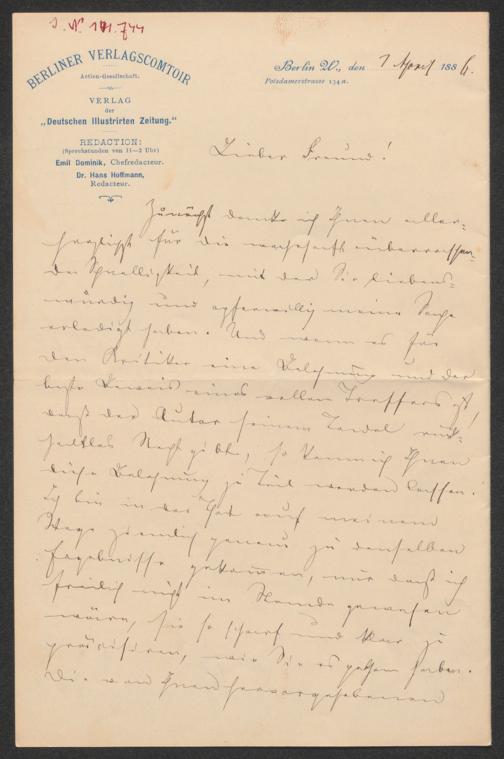 J. N. 141.744
BERLINER VERLAGSCOMTOIR
Actien-Gesellschaft.
VERLAG
der
„Deutschen Illustrirten Zeitung.“
REDACTION:
(Sprechstunden von 11—2 Uhr)
Emil Dominik, Chefredacteur.
Dr. Hans Hoffmann,
Redacteur.
Berlin W., den 7 April 1886.
Potsdamerstrasse 134a.
Lieber Freund!
Zunächst danke ich Ihnen aller-
herzlichst für die wahrhaft überraschen-
de Schnelligkeit, mit der Sie liebens-
würdig und opferwillig meine Sache
erledigt haben. Und wenn es für
den Kritiker eine Belohnung und der
beste Beweis eines vollen Treffers ist,
daß der Autor seinem Tadel rück-
haltlos Recht gibt, so kann ich Ihnen
diese Belohnung zu Teil werden lassen.
Ich bin in der That auf meinem
Wege ziemlich genau zu denselben
Ergebnisse gekommen, nur daß ich
freilich nicht im Stande gewesen
wäre, sie so scharf und klar zu
präcisiren, wie Sie es gethan haben.
Die von Ihnen hervorgehobenen